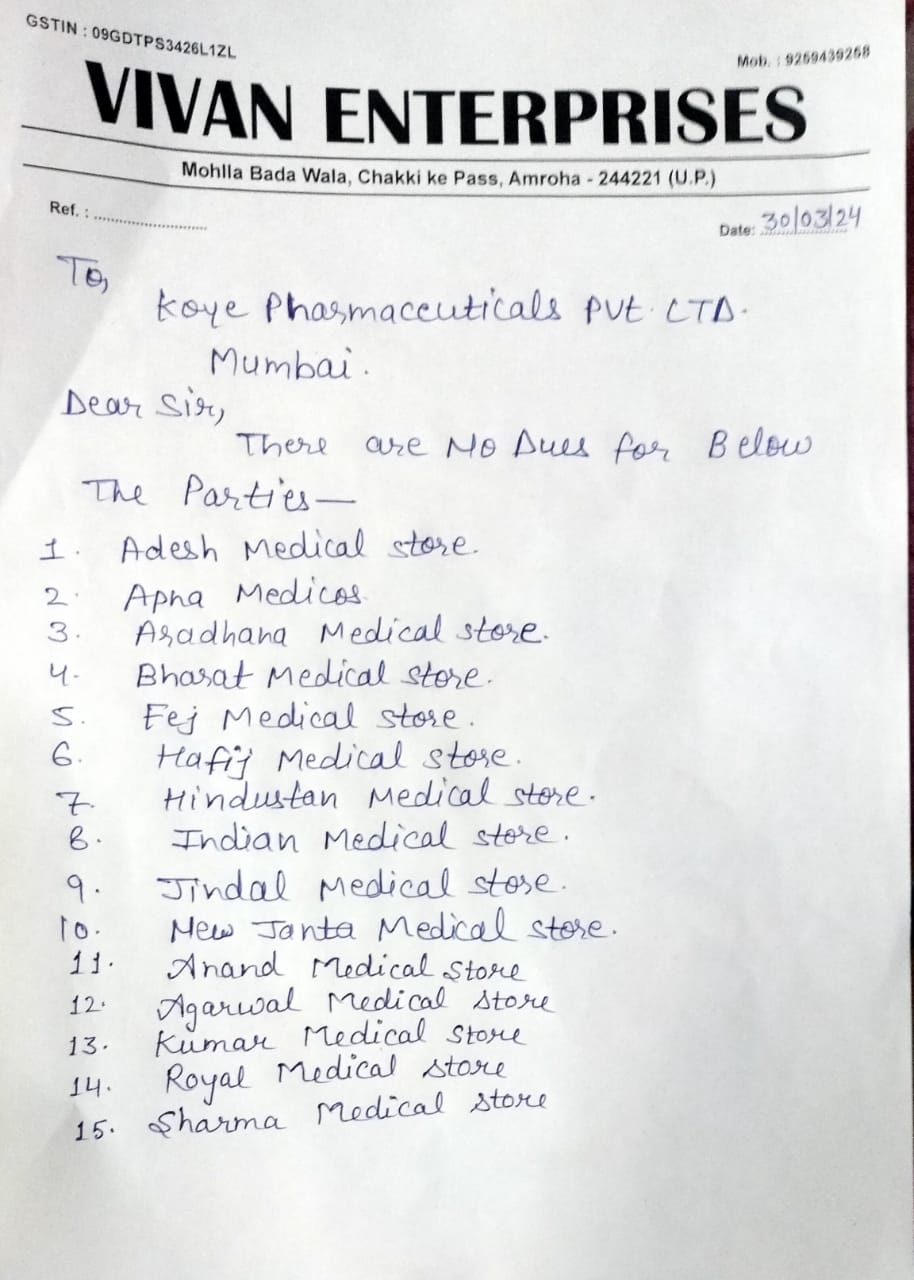 GSTIN : 09GDTPS3426L1ZL
Mob. : 9259439258
VIVAN ENTERPRISES
Mohlla Bada Wala, Chakki ke Pass, Amroha - 244221 (U.P.)
Ref. : ............................
Date: 30/03/24
To,
Koye Pharmaceuticals Pvt. LTD.
Mumbai.
Dear Sir,
There are No Dues for Below
The Parties—
1. Adesh Medical store.
2. Apna Medicos
3. Aradhana Medical store.
4. Bharat Medical store.
5. Fej Medical store.
6. Hafij Medical store.
7. Hindustan Medical store.
8. Indian Medical store.
9. Jindal Medical store.
10. New Janta Medical store.
11. Anand Medical Store
12. Agarwal Medical Store
13. Kumar Medical Store
14. Royal Medical Store
15. Sharma Medical Store